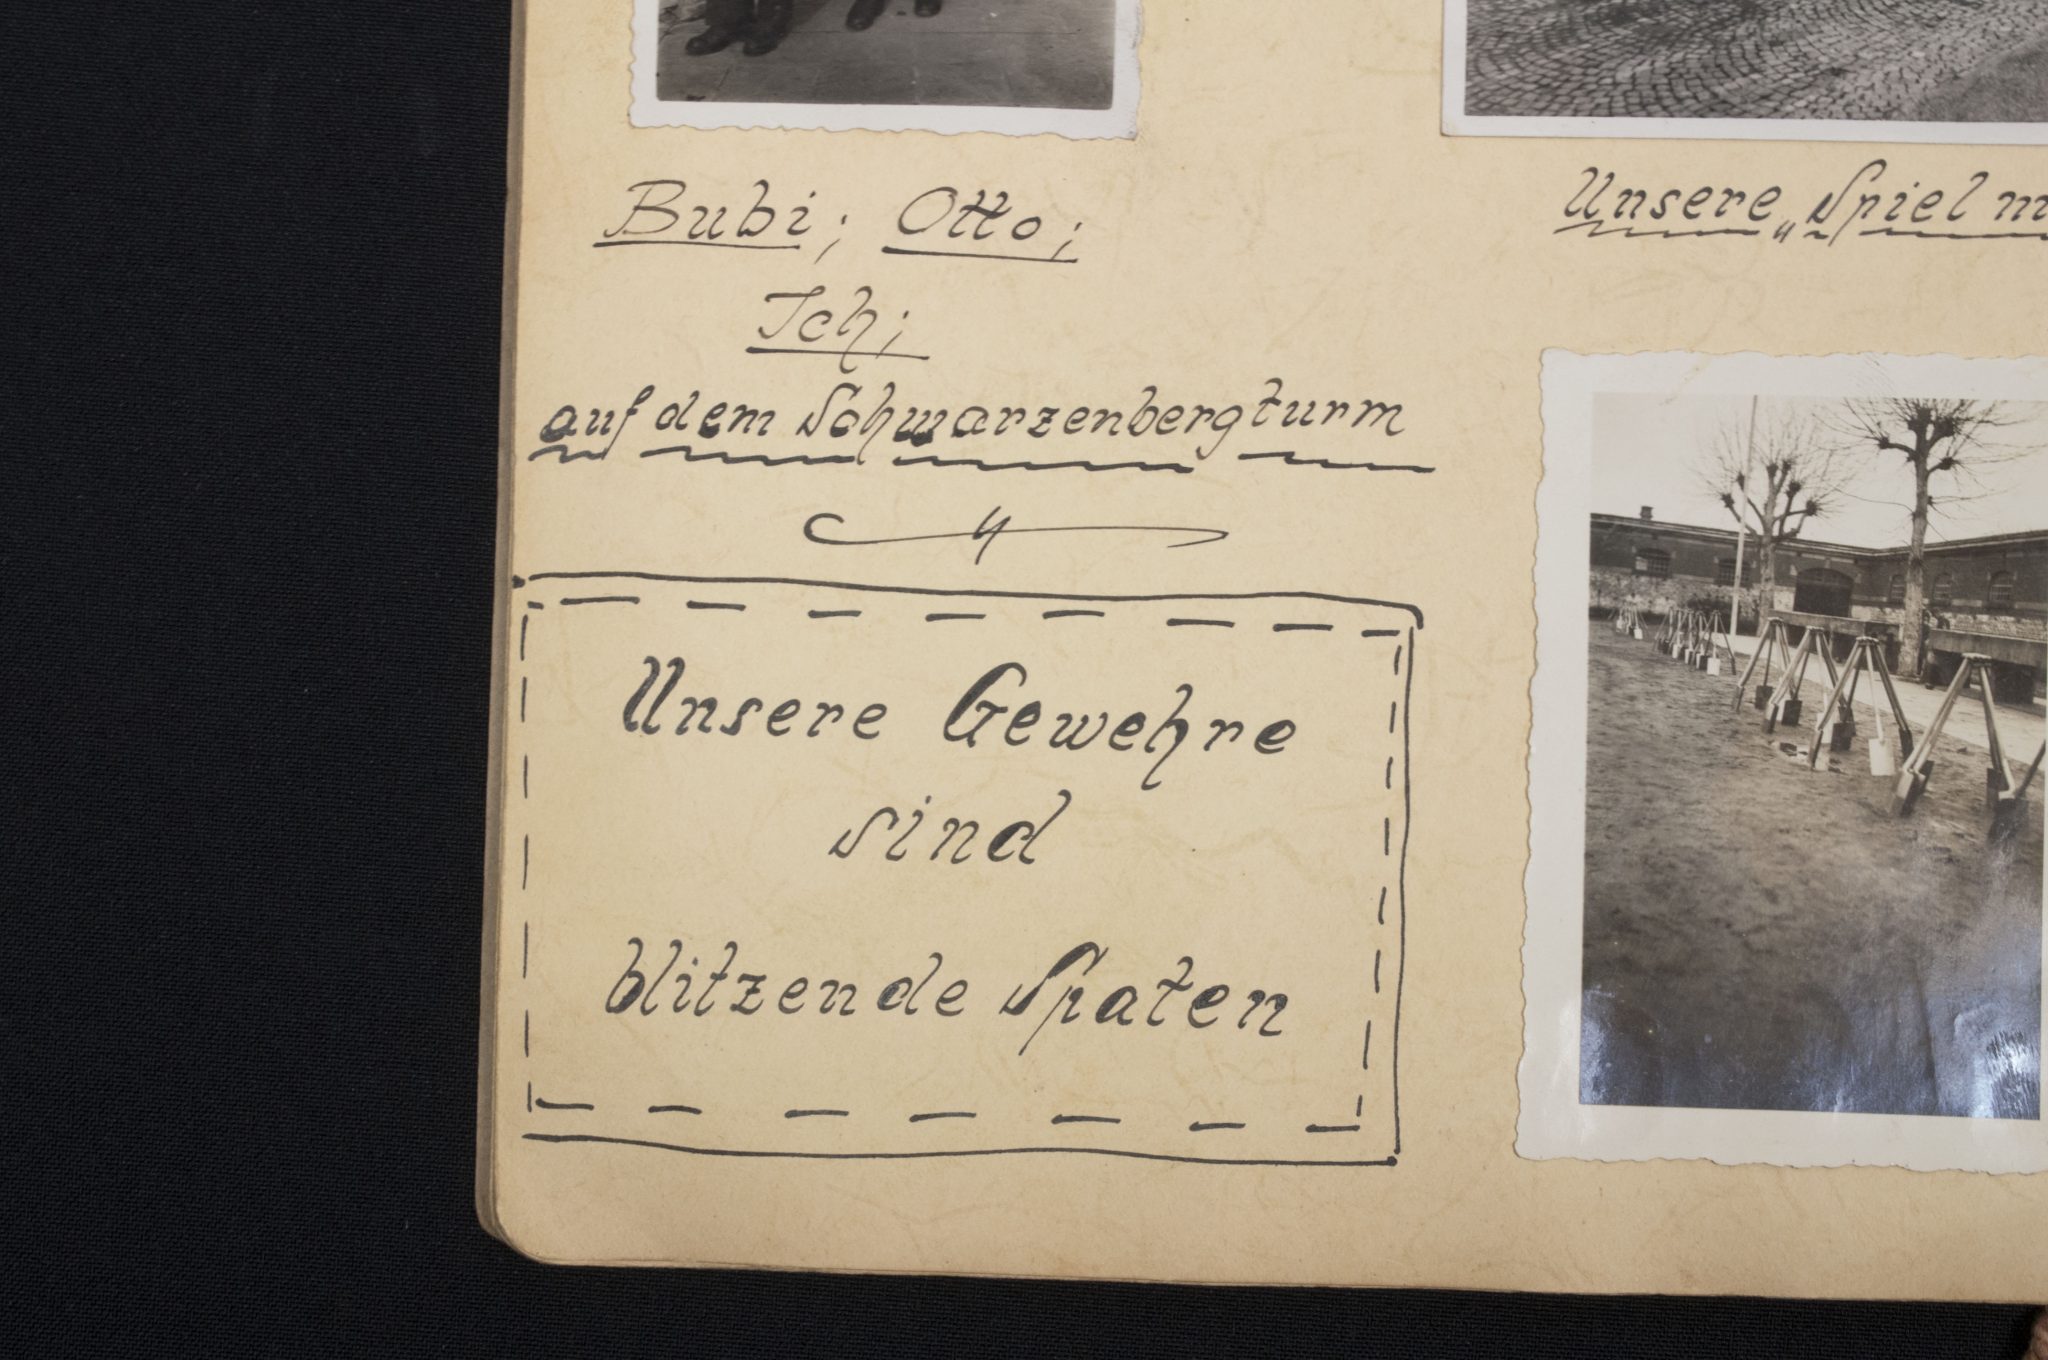 Bubi; Otto;
Ich;
auf dem Schwarzenbergturm
Unsere Gewehre
sind
blitzende Spaten
Unsere „Spiel